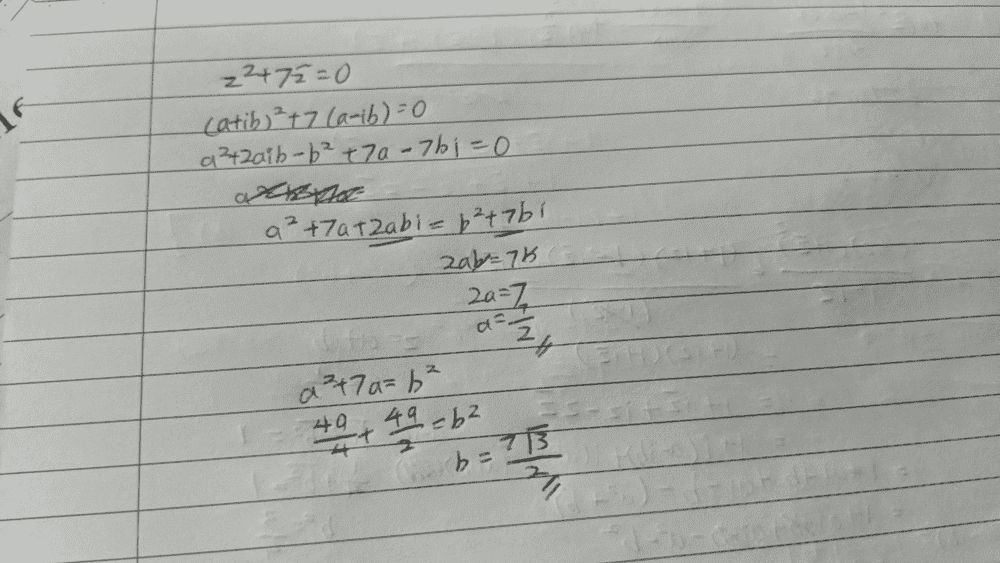 z²+7z̄=0
(a+ib)²+7(a-ib)=0
a²+2aib-b²+7a-7bi=0
a²+7a+2abi=b²+7bi
2ab=7b
2a=7
a=7/2
a²+7a=b²
49/4+49/2=b²
b=7√3/2